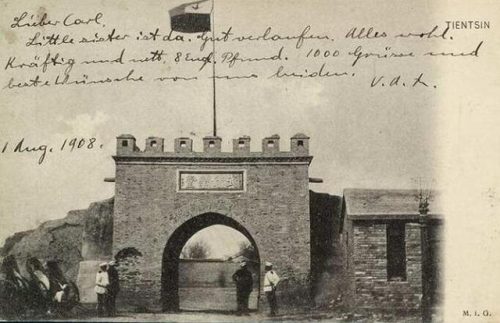 Lieber Carl.
TIENTSIN
Little sister ist da. Gut verlaufen. Alles wohl.
Kräftig und nett, 8 Engl. Pfund. 1000 Grüsse und
beste Wünsche von uns beiden.
V. d. A.
1 Aug. 1908.
M. i. G.